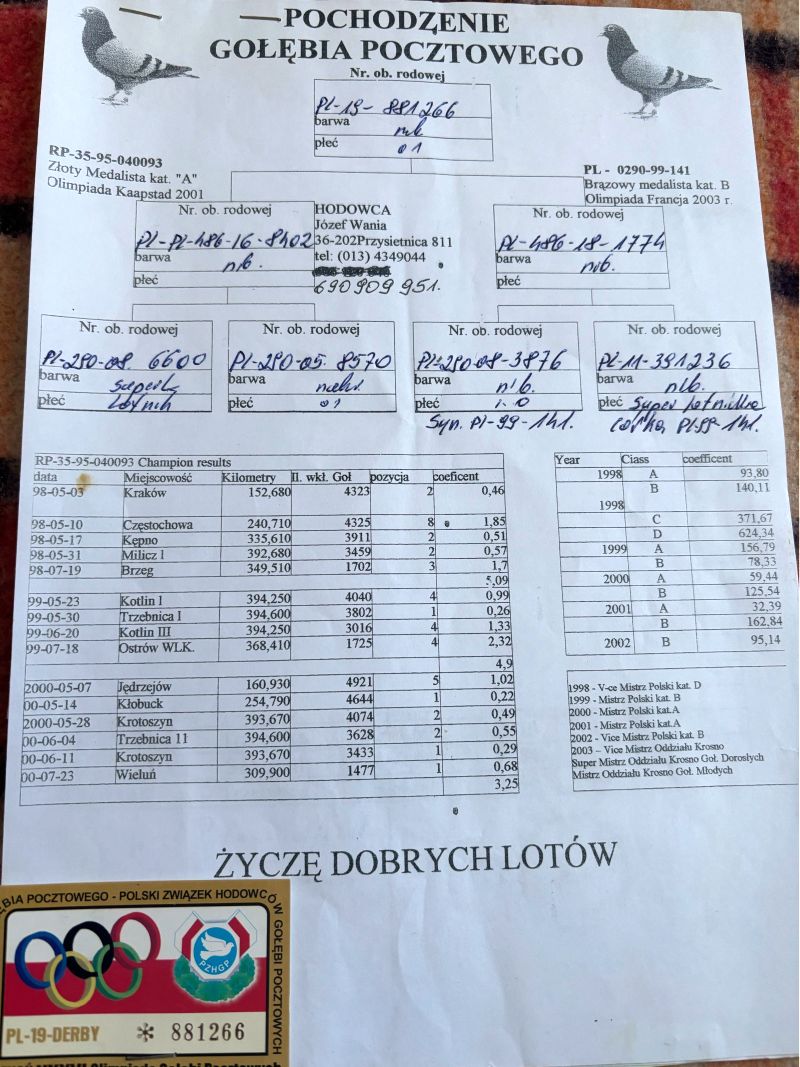 POCHODZENIE
GOŁĘBIA POCZTOWEGO
Nr. ob. rodowej
PL-19- 881266
barwa nb.
płeć 01
RP-35-95-040093
Złoty Medalista kat. "A"
Olimpiada Kaapstad 2001
PL - 0290-99-141
Brązowy medalista kat. B
Olimpiada Francja 2003 r.
HODOWCA
Józef Wania
36-202Przysietnica 811
tel: (013) 4349044
690909951.
Nr. ob. rodowej
PL-PL-486-16-8402
barwa nb.
płeć
Nr. ob. rodowej
PL-486-18-1774
barwa nb.
płeć
Nr. ob. rodowej
PL-290-08. 6600
barwa super
płeć Lotnik
Nr. ob. rodowej
PL-290-05. 8570
barwa
płeć 01
Nr. ob. rodowej
PL-290-08-3876
barwa nb.
płeć 1.0
Syn. PL-99-141.
Nr. ob. rodowej
PL-11-391236
barwa nb.
płeć Super
córka PL99-141.
RP-35-95-040093 Champion results
data Miejscowość Kilometry II. wkł. Goł pozycja coeficent
98-05-03 Kraków 152,680 4323 2 0,46
98-05-10 Częstochowa 240,710 4325 8 1,85
98-05-17 Kępno 335,610 3911 2 0,51
98-05-31 Milicz I 392,680 3459 2 0,57
98-07-19 Brzeg 349,510 1702 3 1,7
5,09
99-05-23 Kotlin I 394,250 4040 4 0,99
99-05-30 Trzebnica I 394,600 3802 1 0,26
99-06-20 Kotlin III 394,250 3016 4 1,33
99-07-18 Ostrów WLK. 368,410 1725 4 2,32
4,9
2000-05-07 Jędrzejów 160,930 4921 5 1,02
00-05-14 Kłobuck 254,790 4644 1 0,22
2000-05-28 Krotoszyn 393,670 4074 2 0,49
00-06-04 Trzebnica 11 394,600 3628 2 0,55
00-06-11 Krotoszyn 393,670 3433 1 0,29
00-07-23 Wieluń 309,900 1477 1 0,68
3,25
Year Ciass coefficent
1998 A 93,80
B 140,11
1998
C 371,67
D 624,34
1999 A 156,79
B 78,33
2000 A 59,44
B 125,54
2001 A 32,39
B 162,84
2002 B 95,14
1998 - V-ce Mistrz Polski kat. D
1999 - Mistrz Polski kat. B
2000 - Mistrz Polski kat.A
2001 - Mistrz Polski kat.A
2002 - Vice Mistrz Polski kat. B
2003 – Vice Mistrz Oddziału Krosno
Super Mistrz Oddziału Krosno Goł. Dorosłych
Mistrz Oddziału Krosno Goł. Młodych
ŻYCZĘ DOBRYCH LOTÓW
POCZTOWEGO - POLSKI ZWIĄZEK HODOWCÓW GOŁĘBI POCZTOWYCH
PZHGP
PL-19-DERBY * 881266